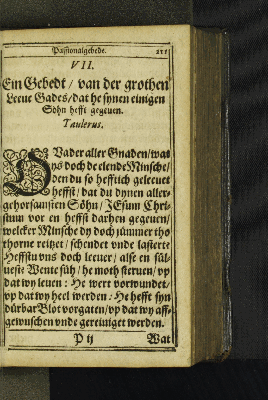 Passionalgebede. 111
VII.
Ein Gebedt / van der grothen
Leeue Gades / dat he synen einigen
Söhn hefft gegeuen.
Taulerus.
O Vader aller Gnaden / wat
ys doch de elende Minsche /
den du so hefftich geleeuet
heffst / dat du dynen aller-
gehorsamsten Söhn / JEsum Chri-
stum vor en heffst darhen gegeuen /
welcker Minsche dy doch jümmer tho
thorne reitzet / schendet vnde lastert?
Heffstu vns doch leeuer / alse en sül-
uest? Wente süh / he moth steruen / vp
dat wy leuen : He wert vorwundet /
vp dat wy heel werden : He hefft syn
dürbar Blot vorgaten / vp dat wy aff-
gewuschen vnde gereiniget werden.
P ij Wat